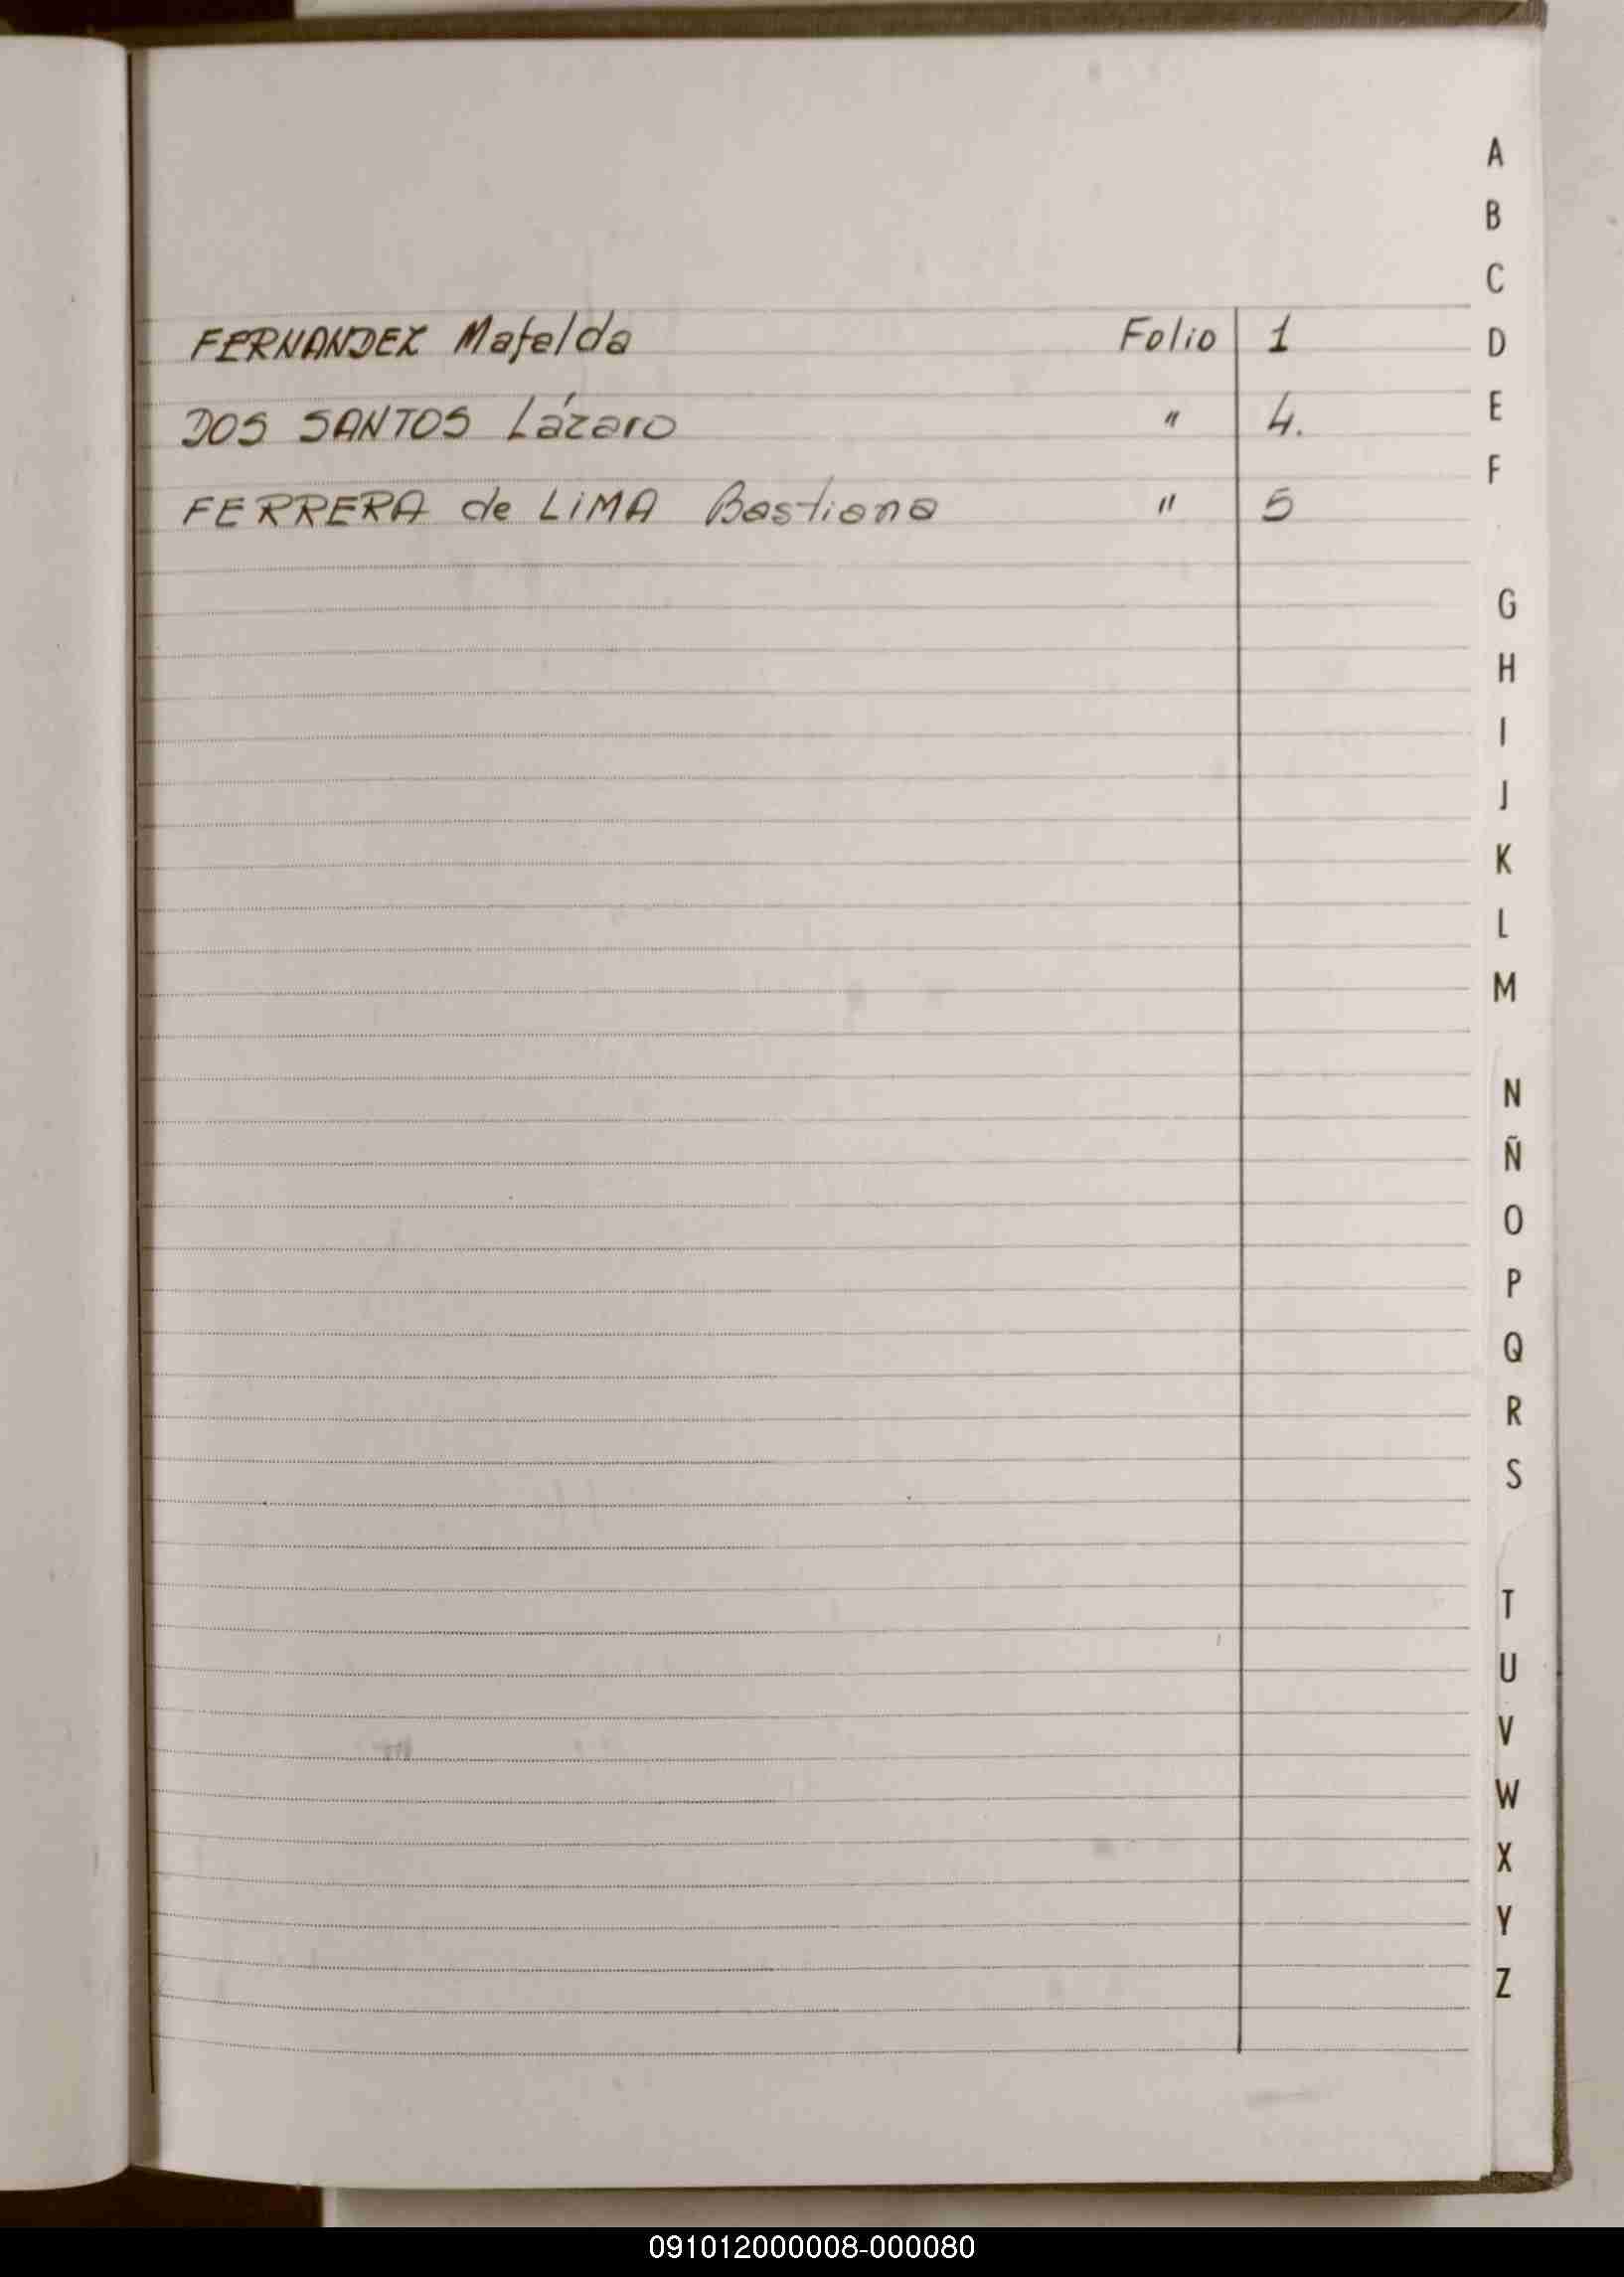 FERNANDEZ Mafelda Folio 1
DOS SANTOS Lázaro " 4.
FERRERA de LiMA Bastiana " 5
A
B
C
D
E
F
G
H
I
J
K
L
M
N
Ñ
O
P
Q
R
S
T
U
V
W
X
Y
Z
091012000008-000080